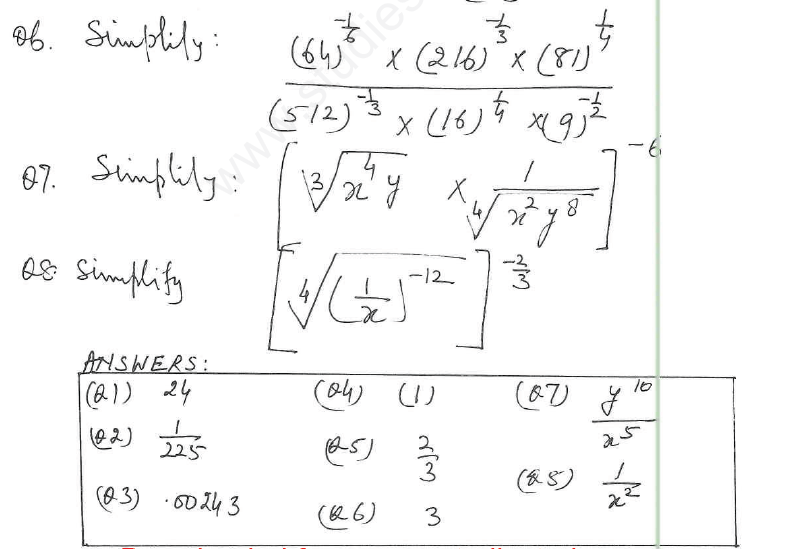 Q6. Simplify: ((64)^(-1/6) × (216)^(-1/3) × (81)^(1/4)) / ((512)^(-1/3) × (16)^(1/4) × (9)^(-1/2))
Q7. Simplify: [∛(x⁴y) × 1/∜(x²y⁸)]^-6
Q8. Simplify [∜((1/x)^-12)]^(-2/3)
ANSWERS:
(Q1) 24 (Q4) (1) (Q7) y^10/x^5
(Q2) 1/225 (Q5) 2/3 (Q8) 1/x²
(Q3) .00243 (Q6) 3